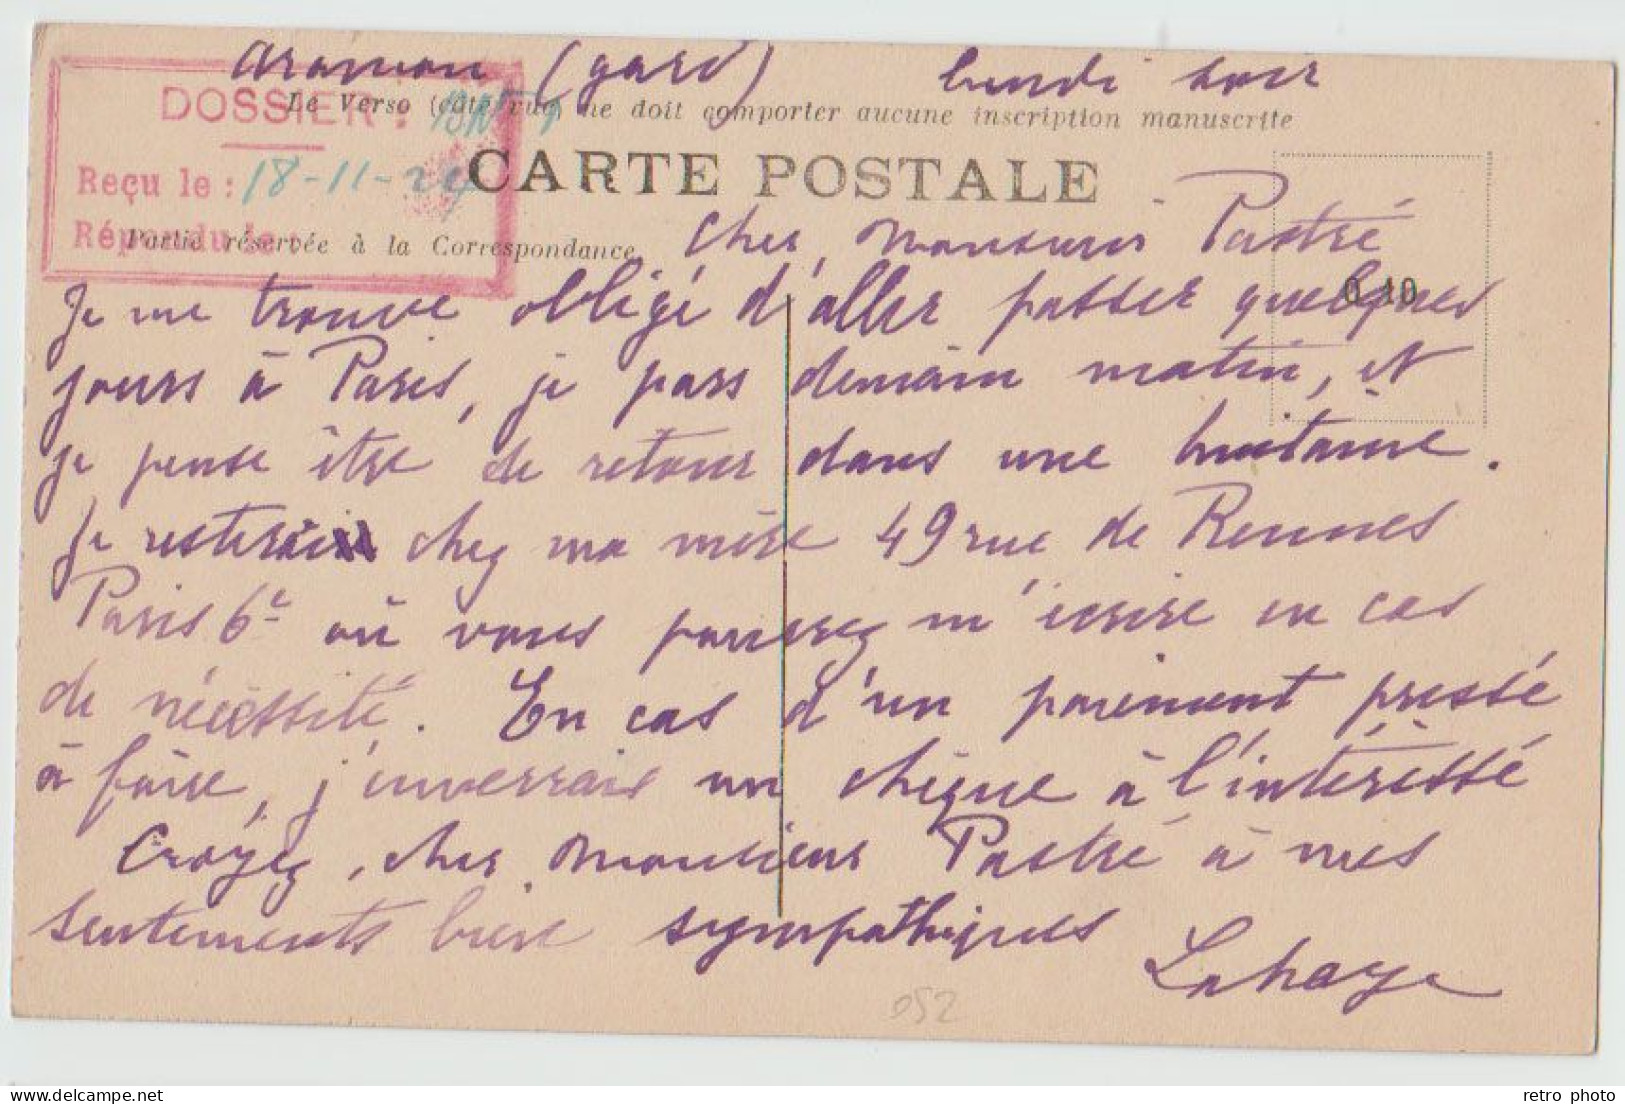 Aramon (gard) lundi soir
Le Verso (côté vue) ne doit comporter aucune inscription manuscrite
DOSSIER :
CARTE POSTALE
Reçu le : 18-11-24
Répondu le :
Partie réservée à la Correspondance
Cher Monsieur Pastré
Je me trouve obligé d'aller passer quelques
jours à Paris, je pars demain matin, et
je pense être de retour dans une huitaine.
Je resterai chez ma mère 49 rue de Rennes
Paris 6e où vous pouvez m'écrire en cas
de nécessité. En cas d'un paiement pressé
à faire, j'enverrais un chèque à l'intéressé
Croyez, cher Monsieur Pastré à mes
sentements bien sympathiques
Lahaye
052
retro photo
delcampe.net